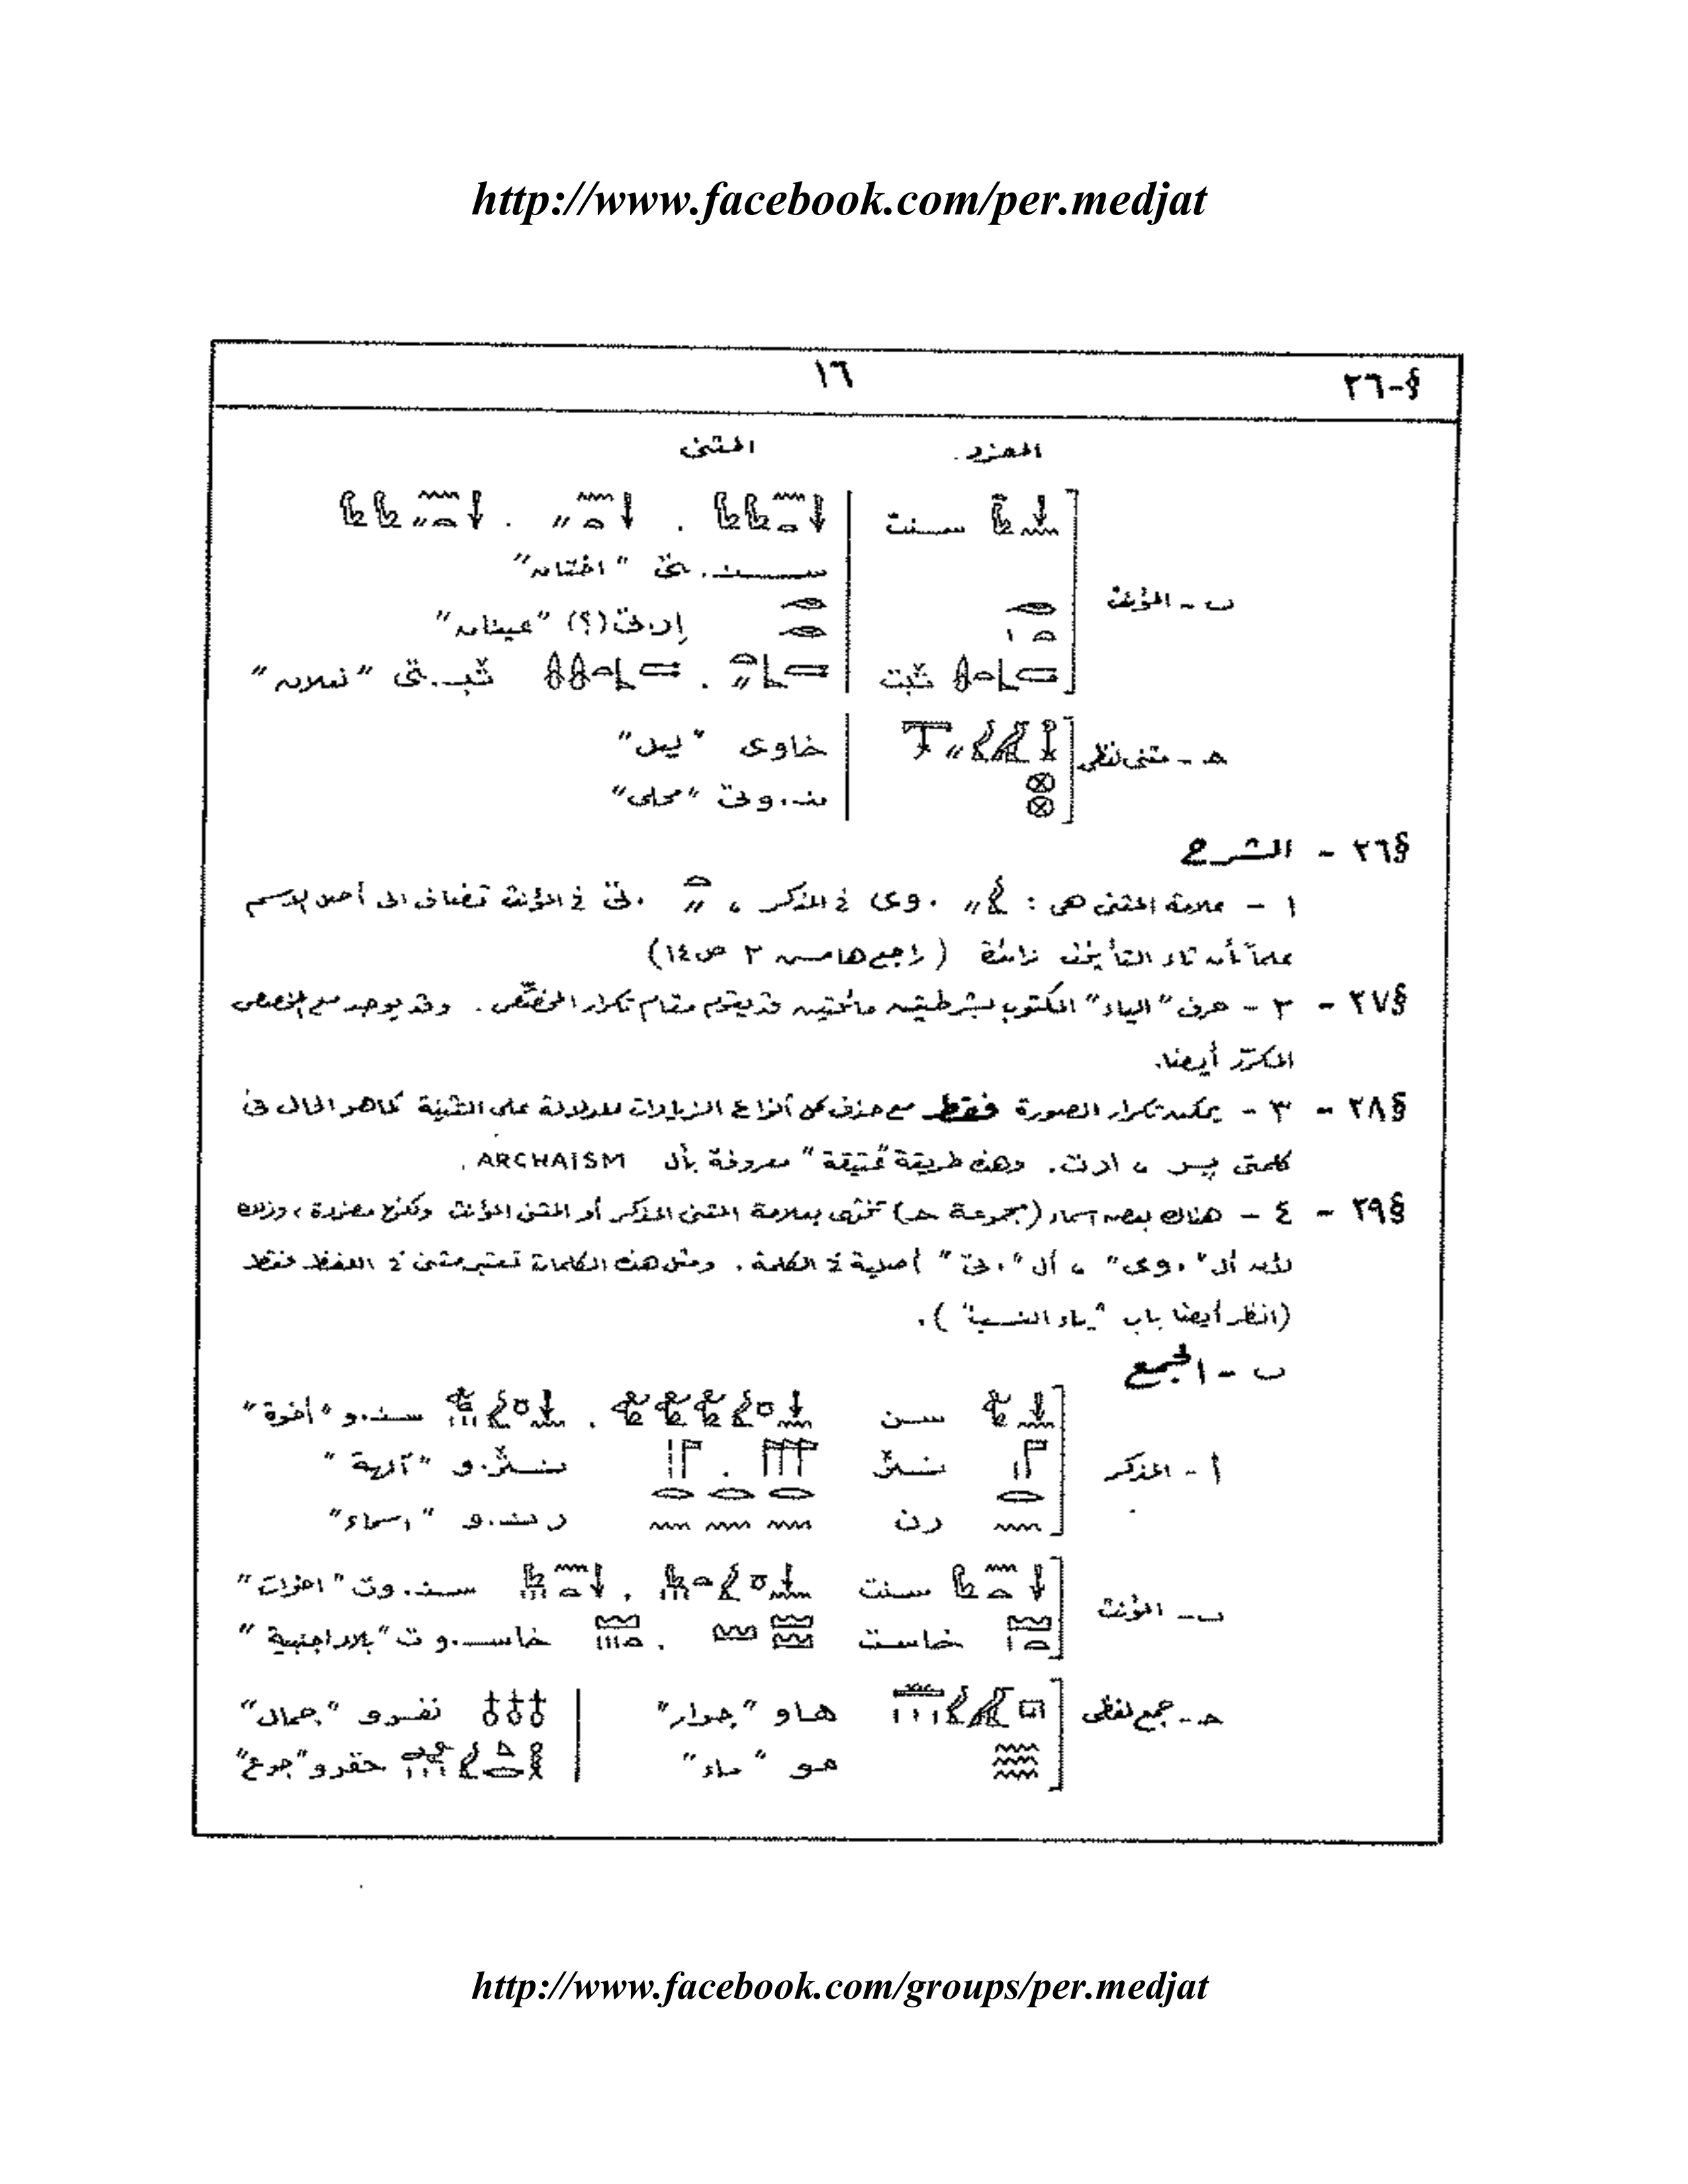 http://www.facebook.com/per.medjat
§-٢٦ ١٦
المفرد المثنى
ب - المؤنث
سنت
سنـ.تى "اختان"
إر.تى (؟) "عينان"
ثبت ثبـ.تى "نعلان"
هـ - مثنى لفظى
خاوى "ليل"
نـ.وتى "محلى"
§٢٦ - الشرح
١ - علامة المثنى هى : .وى فى المذكر ، .تى فى المؤنث تضاف الى أصل الاسم
علماً بأن تاء التأنيث زائدة (راجع هامش ٢ ص١٤)
§٢٧ - ٢ - حرف "الياء" المكتوب بشرطتين مائلتين قد يقوم مقام تكرار المخصّص . وقد يوجد مع المخصص
المكرّر أيضا.
§٢٨ - ٣ - يمكن تكرار الصورة فقط مع حذف كل أنواع الزيادات للدلالة على التثنية كما هو الحال فى
كلمتى ، ارت. وهذه طريقة "عتيقة" معروفة بأل ARCHAISM .
§٢٩ - ٤ - هناك بعض أسماء (مجموعة حـ) تنتهى بعلامة المثنى المذكر أو المثنى المؤنث ولكنها مفردة ، وذلك
لأن أل ".وى" ، أل ".تى" أصلية فى الكلمة . ومثل هذه الكلمات تعتبر مثنى فى اللفظ فقط
(انظر أيضا باب "ياء النسبة") .
ب - الجمع
أ - المذكر
سن سنـ.و "أخوة"
نثر نثر.و "آلهة"
رن رنـ.و "اسماء"
ب - المؤنث
سنت سنـ.وت "اخوات"
خاست خاسـ.وت "بلاد اجنبية"
حـ - جمع لفظى
هاو "جوار" نفرو "جمال"
مو "ماء" حقرو "جوع"
http://www.facebook.com/groups/per.medjat